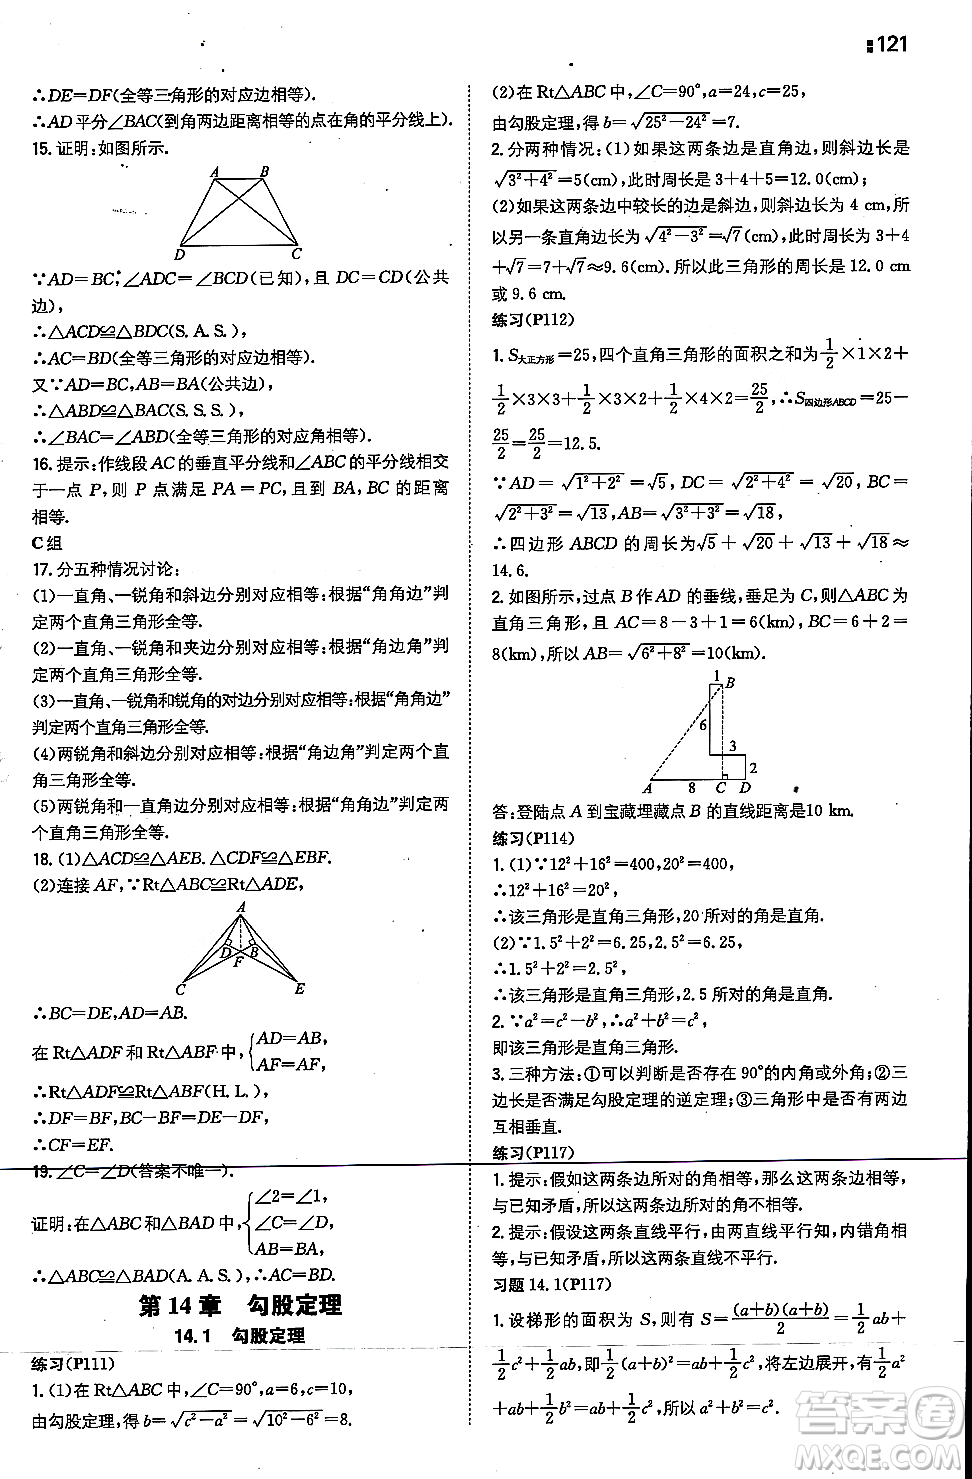 121
∴DE=DF(全等三角形的对应边相等).
∴AD平分∠BAC(到角两边距离相等的点在角的平分线上).
15.证明:如图所示.
A B
D C
∵AD=BC,∠ADC=∠BCD(已知),且DC=CD(公共
边),
∴△ACD≌△BDC(S.A.S.),
∴AC=BD(全等三角形的对应边相等).
又∵AD=BC,AB=BA(公共边),
∴△ABD≌△BAC(S.S.S.),
∴∠BAC=∠ABD(全等三角形的对应角相等).
16.提示:作线段AC的垂直平分线和∠ABC的平分线相交
于一点P,则P点满足PA=PC,且到BA,BC的距离
相等.
C组
17.分五种情况讨论:
(1)一直角、一锐角和斜边分别对应相等:根据“角角边”判
定两个直角三角形全等.
(2)一直角、一锐角和夹边分别对应相等:根据“角边角”判
定两个直角三角形全等.
(3)一直角、一锐角和锐角的对边分别对应相等:根据“角角边”
判定两个直角三角形全等.
(4)两锐角和斜边分别对应相等:根据“角边角”判定两个直
角三角形全等.
(5)两锐角和一直角边分别对应相等:根据“角角边”判定两
个直角三角形全等.
18.(1)△ACD≌△AEB.△CDF≌△EBF.
(2)连接AF,∵Rt△ABC≌Rt△ADE,
A
D B
F
C E
∴BC=DE,AD=AB.
在Rt△ADF和Rt△ABF中,{AD=AB,
AF=AF.
∴Rt△ADF≌Rt△ABF(H.L.).
∴DF=BF,BC−BF=DE−DF.
∴CF=EF.
19.∠C=∠D(答案不唯一).
证明:在△ABC和△BAD中,{∠2=∠1,
∠C=∠D,
AB=BA,
∴△ABC≌△BAD(A.A.S.),∴AC=BD.
第14章 勾股定理
14.1 勾股定理
练习(P111)
1.(1)在Rt△ABC中,∠C=90°,a=6,c=10,
由勾股定理,得b=√(c²−a²)=√(10²−6²)=8.
(2)在Rt△ABC中,∠C=90°,a=24,c=25,
由勾股定理,得b=√(25²−24²)=7.
2.分两种情况:(1)如果这两条边是直角边,则斜边长是
√(3²+4²)=5(cm),此时周长是3+4+5=12.0(cm);
(2)如果这两条边中较长的边是斜边,则斜边长为4 cm,所
以另一条直角边长为√(4²−3²)=√7(cm),此时周长为3+4
+√7=7+√7≈9.6(cm).所以此三角形的周长是12.0 cm
或9.6 cm.
练习(P112)
1.S大正方形=25,四个直角三角形的面积之和为1/2×1×2+
1/2×3×3+1/2×3×2+1/2×4×2=25/2,∴S四边形ABCD=25−
25/2=25/2=12.5.
∵AD=√(1²+2²)=√5,DC=√(2²+4²)=√20,BC=
√(2²+3²)=√13,AB=√(3²+3²)=√18,
∴四边形ABCD的周长为√5+√20+√13+√18≈
14.6.
2.如图所示,过点B作AD的垂线,垂足为C,则△ABC为
直角三角形,且AC=8−3+1=6(km),BC=6+2=
8(km),所以AB=√(6²+8²)=10(km).
1 B
6
3
2
A 8 C D
答:登陆点A到宝藏埋藏点B的直线距离是10 km.
练习(P114)
1.(1)∵12²+16²=400,20²=400,
∴12²+16²=20²,
∴该三角形是直角三角形,20所对的角是直角.
(2)∵1.5²+2²=6.25,2.5²=6.25,
∴1.5²+2²=2.5²,
∴该三角形是直角三角形,2.5所对的角是直角.
2.∵a²=c²−b²,∴a²+b²=c²,
即该三角形是直角三角形.
3.三种方法:①可以判断是否存在90°的内角或外角;②三
边长是否满足勾股定理的逆定理;③三角形中是否有两边
互相垂直.
练习(P117)
1.提示:假如这两条边所对的角相等,那么这两条边相等,
与已知矛盾,所以这两条边所对的角不相等.
2.提示:假设这两条直线平行,由两直线平行知,内错角相
等,与已知矛盾,所以这两条直线不平行.
习题14.1(P117)
1.设梯形的面积为S,则S=(a+b)(a+b)/2=1/2ab+
1/2c²+1/2ab,即1/2(a+b)²=1/2c²+ab,将左边展开,有1/2a²
+ab+1/2b²=1/2c²+ab,所以a²+b²=c².
答案圈
MXQE.COM